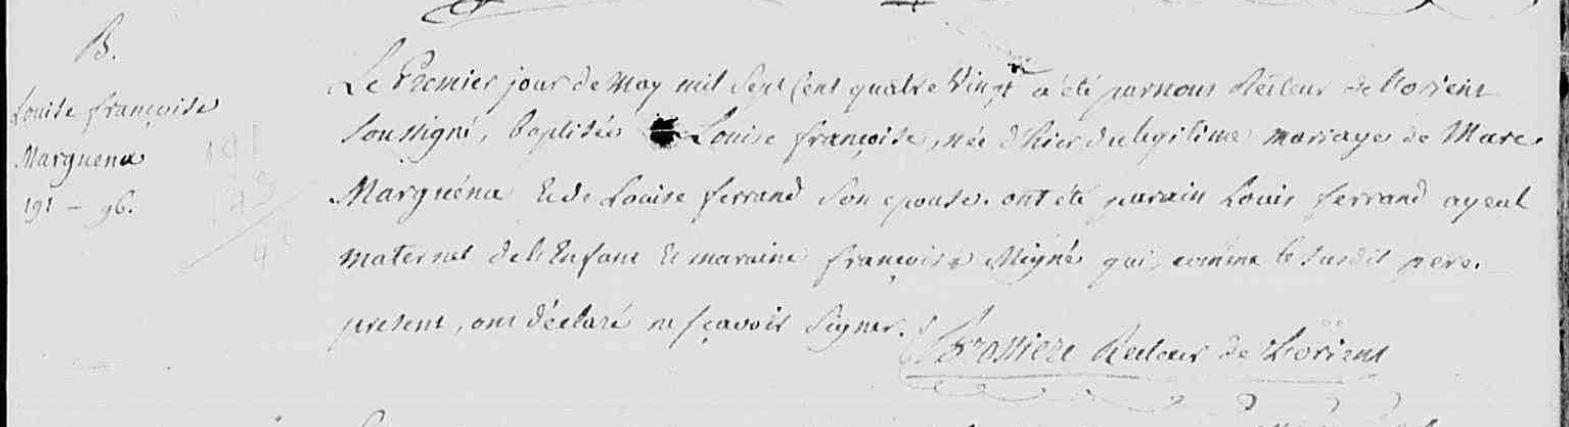 B.
Louise françoise
Marguena
191 - 96.
Le Premier jour de May mil Sept Cent quatre Vingt a été par nous Recteur de l'orient
Soussigné, baptisée Louise françoise, née d'hier du legitime mariage de Marc
Marguéna & de Louise ferrand Son epouse. ont été parain Louis ferrand ayeul
maternel de l'Enfant & maraine françoise Migné qui, comme le susdit pere.
present, ont déclaré ne sçavoir Signer.
Brossiere Recteur de L'orient